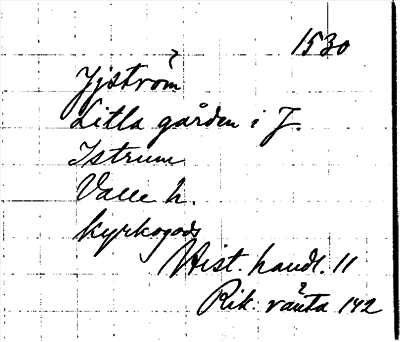 1530
Yjström
Litla gården i J.
Istrum
Valle h.
kyrkogods
Hist. handl. 11
Rik. ränta 142